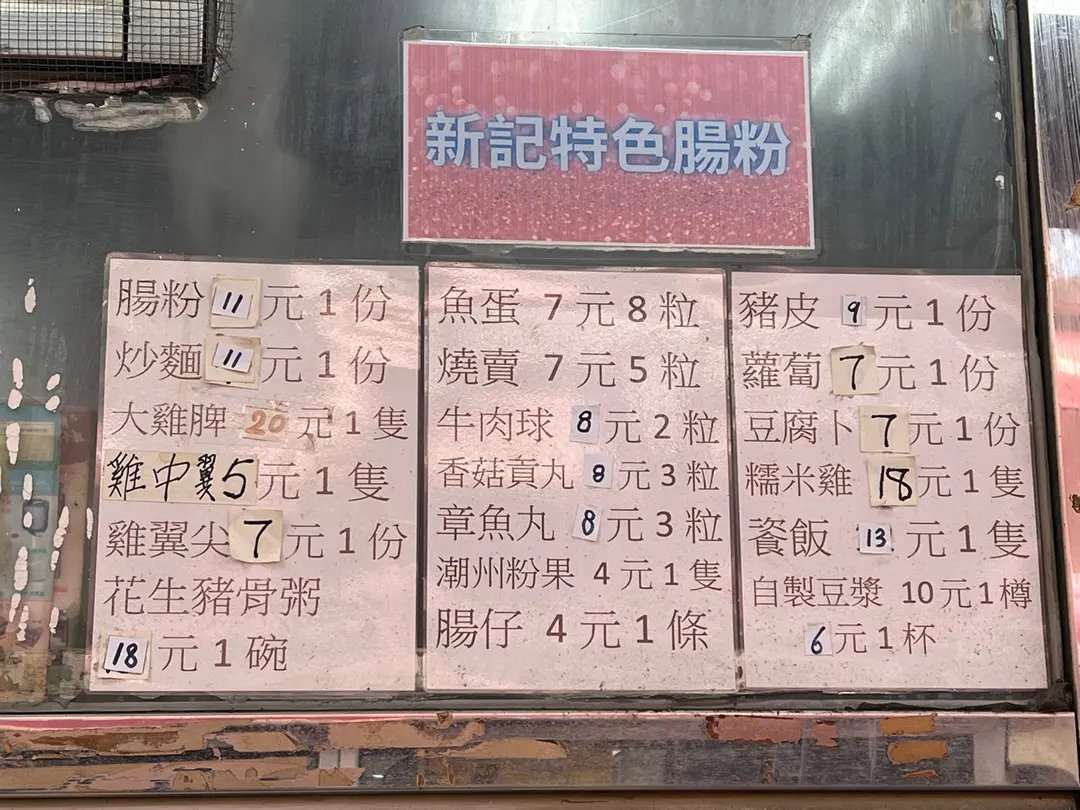 新記特色腸粉
腸粉 11 元 1 份
炒麵 11 元 1 份
大雞脾 20 元 1 隻
雞中翼 5 元 1 隻
雞翼尖 7 元 1 份
花生豬骨粥
18 元 1 碗
魚蛋 7 元 8 粒
燒賣 7 元 5 粒
牛肉球 8 元 2 粒
香菇貢丸 8 元 3 粒
章魚丸 8 元 3 粒
潮州粉果 4 元 1 隻
腸仔 4 元 1 條
豬皮 9 元 1 份
蘿蔔 7 元 1 份
豆腐卜 7 元 1 份
糯米雞 18 元 1 隻
餈飯 13 元 1 隻
自製豆漿 10 元 1 樽
6 元 1 杯